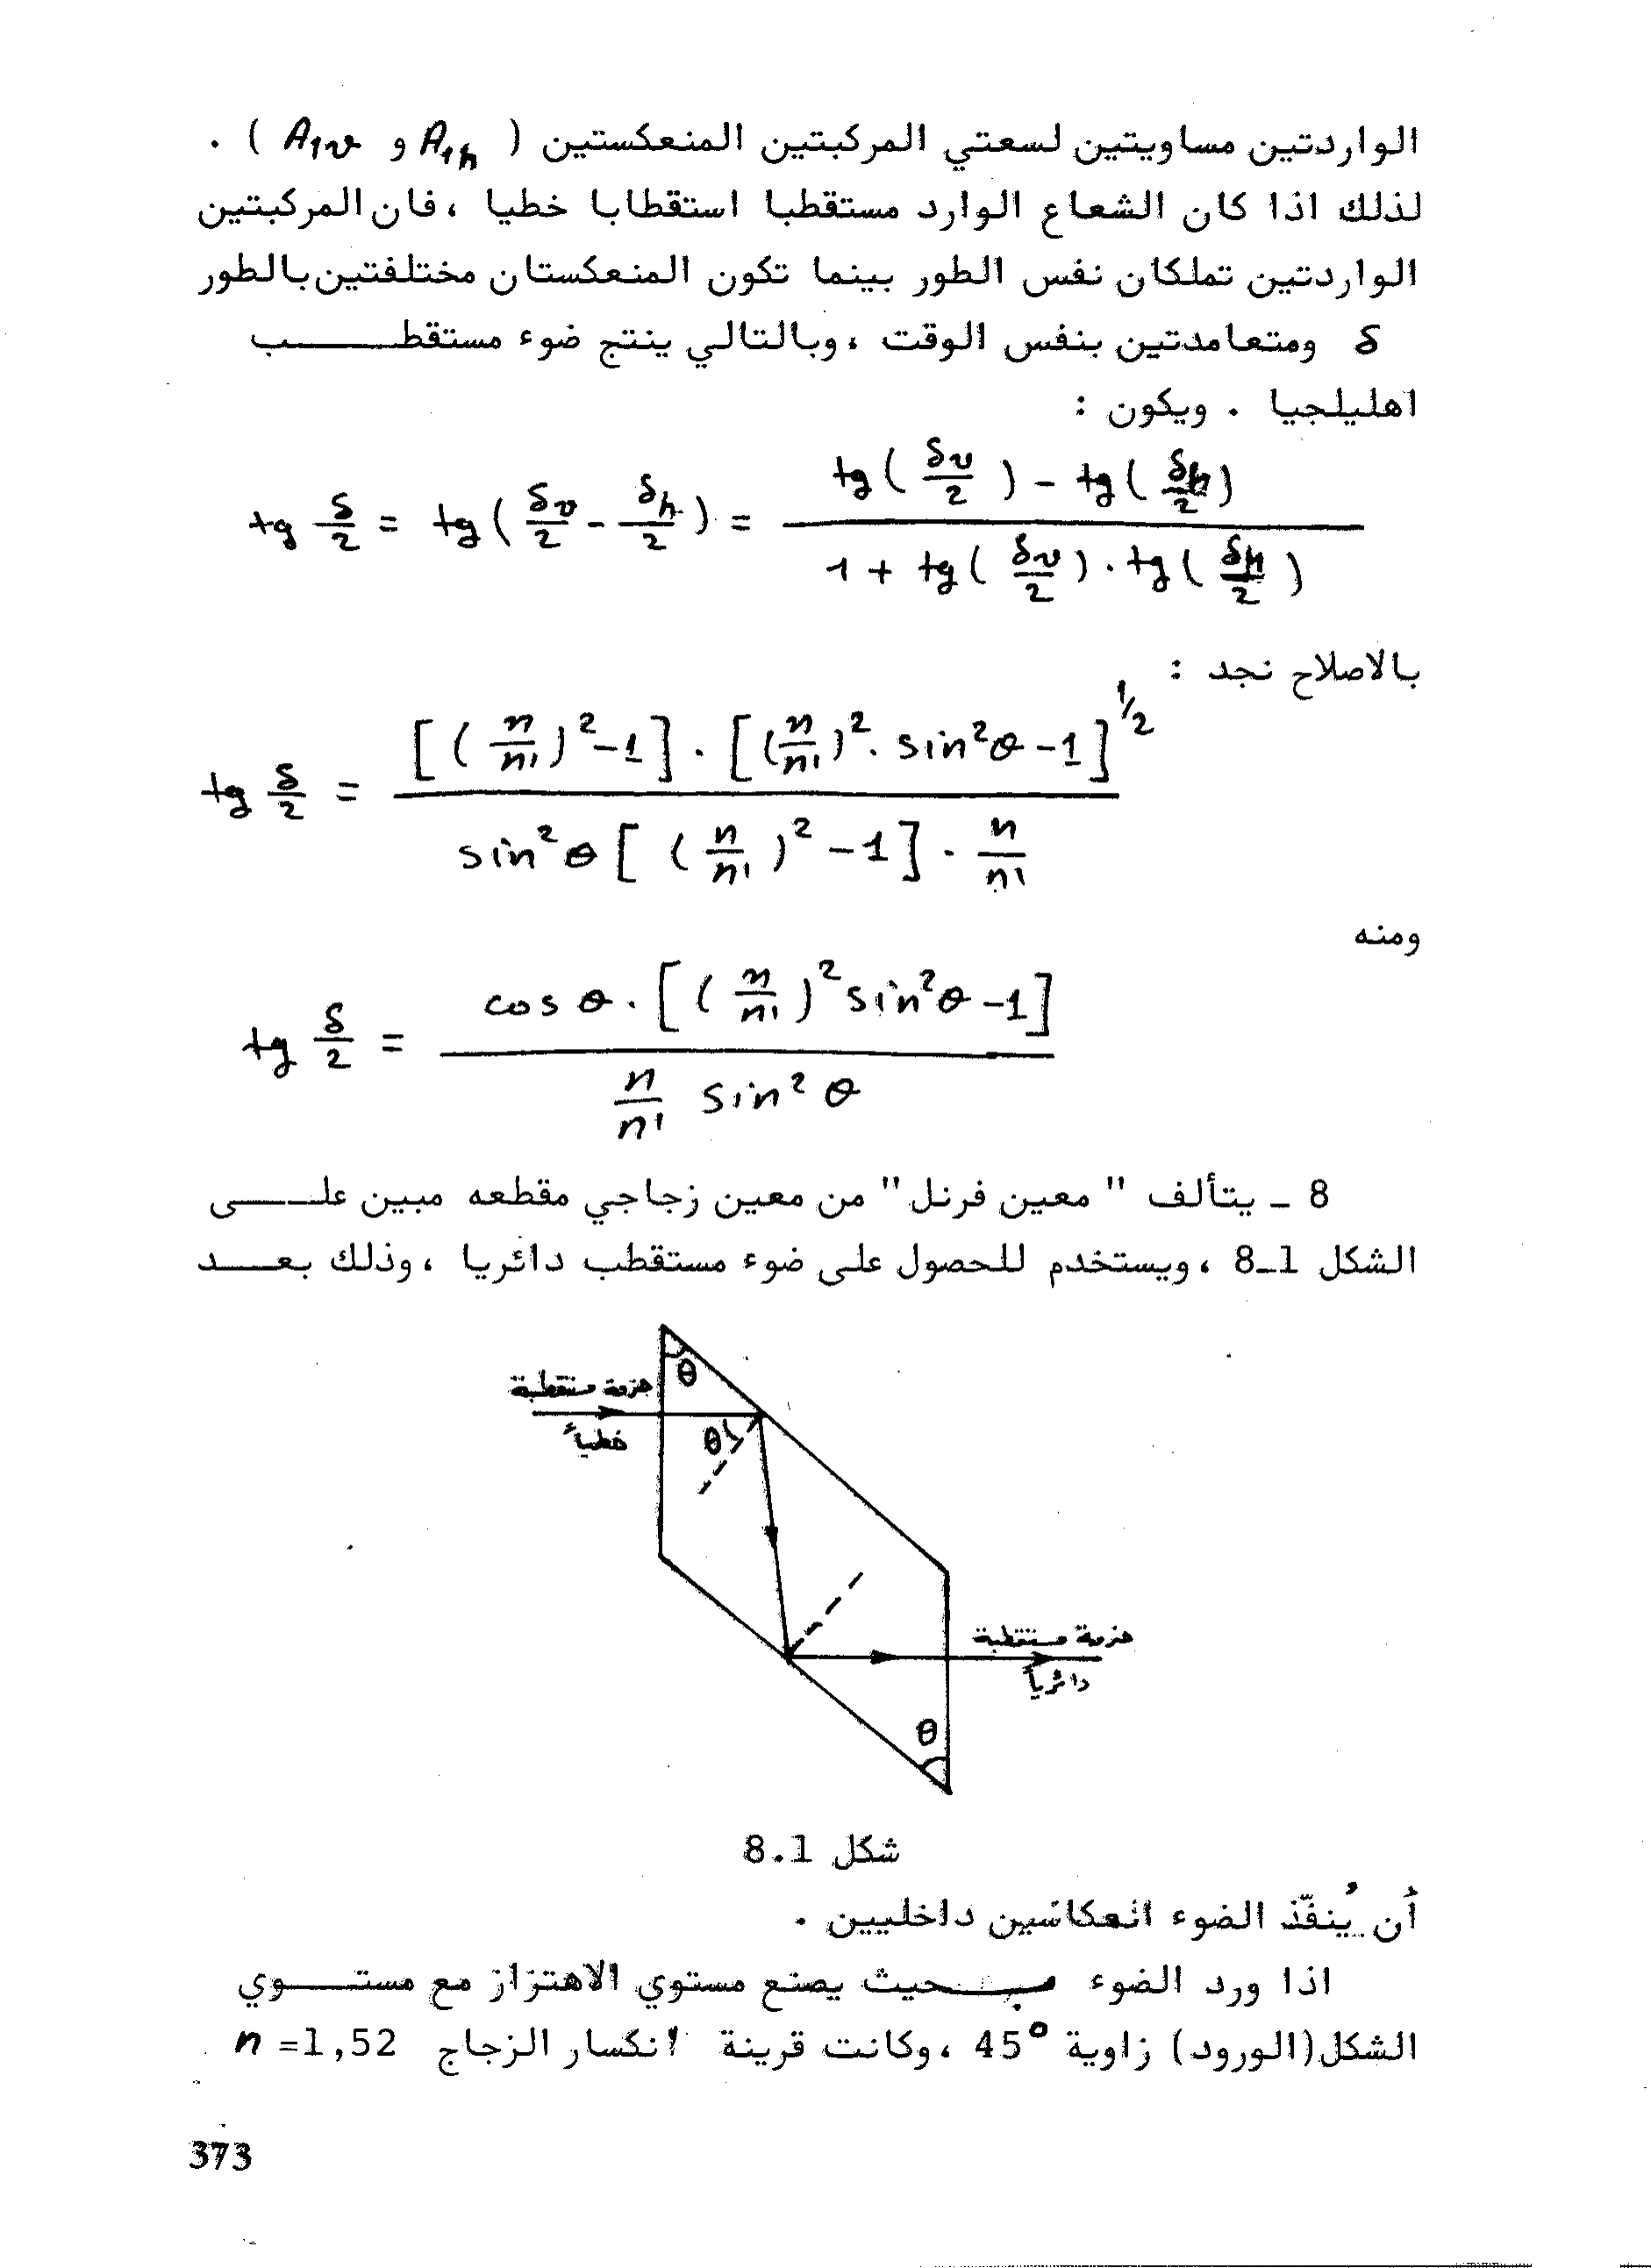 الواردتين مساويتين لسعتي المركبتين المنعكستين ( A₁ₕ و A₁ᵥ ) .
لذلك اذا كان الشعاع الوارد مستقطبا استقطابا خطيا ، فان المركبتين
الواردتين تملكان نفس الطور بينما تكون المنعكستان مختلفتين بالطور
δ ومتعامدتين بنفس الوقت ، وبالتالي ينتج ضوء مستقطـــب
اهليلجيا . ويكون :
tg δ/2 = tg ( δv/2 - δh/2 ) = [ tg ( δv/2 ) - tg ( δh/2 ) ] / [ 1 + tg ( δv/2 ) . tg ( δh/2 ) ]
بالاصلاح نجد :
tg δ/2 = [ ( n/n' )² - 1 ] . [ ( n/n' )² . sin²θ - 1 ]^1/2 / sin²θ [ ( n/n' )² - 1 ] . n/n'
ومنه
tg δ/2 = cos θ . [ ( n/n' )² sin²θ - 1 ] / n/n' sin²θ
8 ـ يتألف " معين فرنل " من معين زجاجي مقطعه مبين علـــى
الشكل 1ـ8 ، ويستخدم للحصول على ضوء مستقطب دائريا ، وذلك بعـــد
θ
حزمة مستقطبة
خطياً
θ
حزمة مستقطبة
دائرياً
θ
شكل 8.1
أن يُنفّذ الضوء انعكاسين داخليين .
اذا ورد الضوء بـــحيث يصنع مستوي الاهتزاز مع مستـــوي
الشكل(الورود) زاوية 45° ، وكانت قرينة انكسار الزجاج n =1,52
373